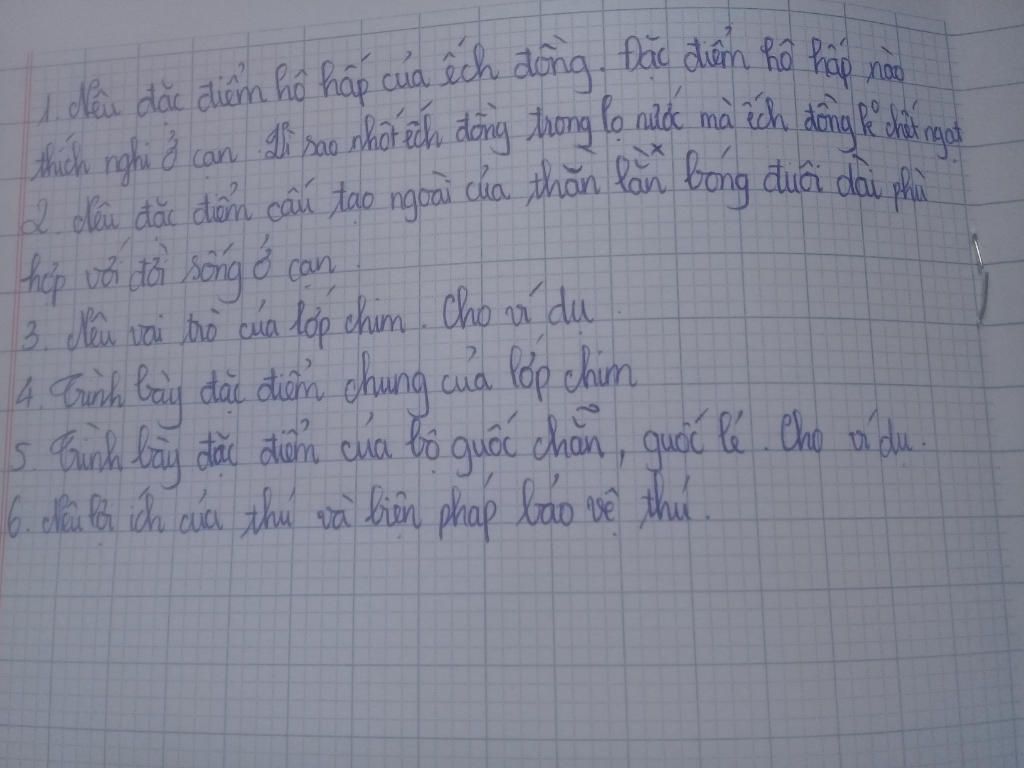 1. Nêu đặc điểm hô hấp của ếch đồng. Đặc điểm hô hấp nào
thích nghi ở cạn. Vì sao nhốt ếch đồng trong lọ nước mà ếch đồng k° chết ngạt
2. Nêu đặc điểm cấu tạo ngoài của thằn lằn bóng đuôi dài phù
hợp với đời sống ở cạn.
3. Nêu vai trò của lớp chim. Cho ví dụ.
4. Trình bày đặc điểm chung của lớp chim
5. Trình bày đặc điểm của bộ guốc chẵn, guốc lẻ. Cho ví dụ.
6. Nêu lợi ích của thú và biện pháp bảo vệ thú.